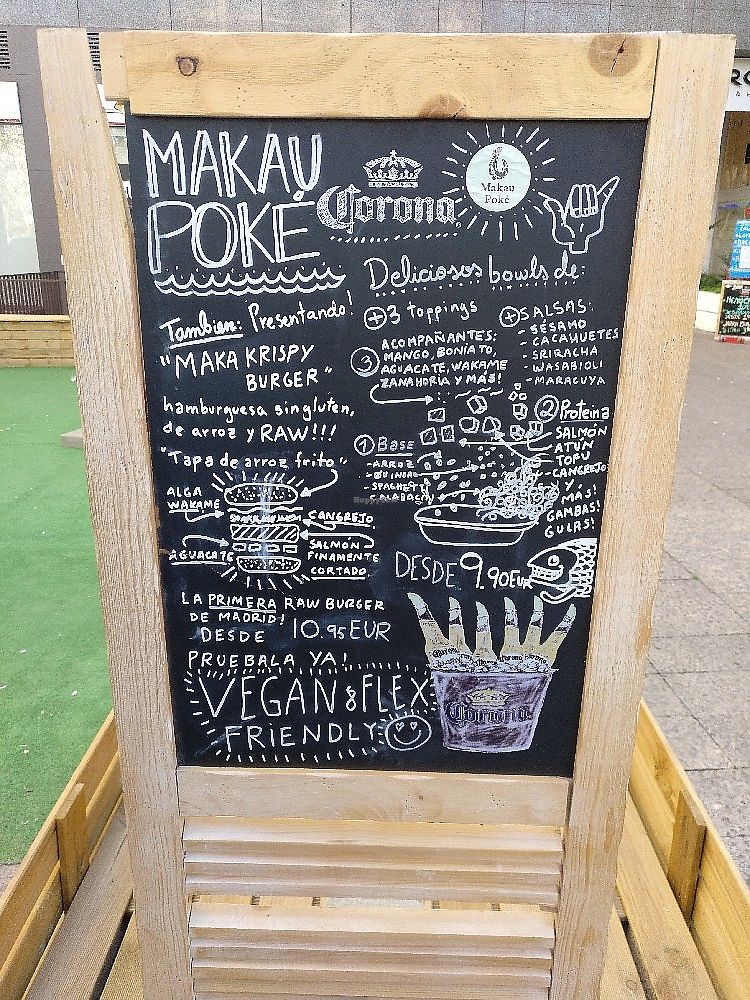 MAKAU
POKÉ
Corona
Makau
Poké
Deliciosos bowls de:
Tambien: Presentando!
"MAKA KRISPY
BURGER"
hamburguesa sin gluten,
de arroz y RAW!!!
"Tapa de arroz frito"
ALGA
WAKAME
CANGREJO
AGUACATE
SALMÓN
FINAMENTE
CORTADO
LA PRIMERA RAW BURGER
DE MADRID!
DESDE 10.95 EUR
PRUEBALA YA!
+3 toppings
3 ACOMPAÑANTES:
MANGO, BONIATO,
AGUACATE, WAKAME
ZANAHORIA Y MÁS!
+SALSAS:
- SÉSAMO
- CACAHUETES
- SRIRACHA
- WASABIOLI
- MARACUYA
2 Proteina
SALMÓN
ATÚN
TOFU
CANGREJO
Y
MÁS!
GAMBAS!
GULAS!
1 Base
- ARROZ
- QUINOA
- SPAGHETTI
CALABACÍN
DESDE 9.90 EUR
VEGAN & FLEX
FRIENDLY
Corona